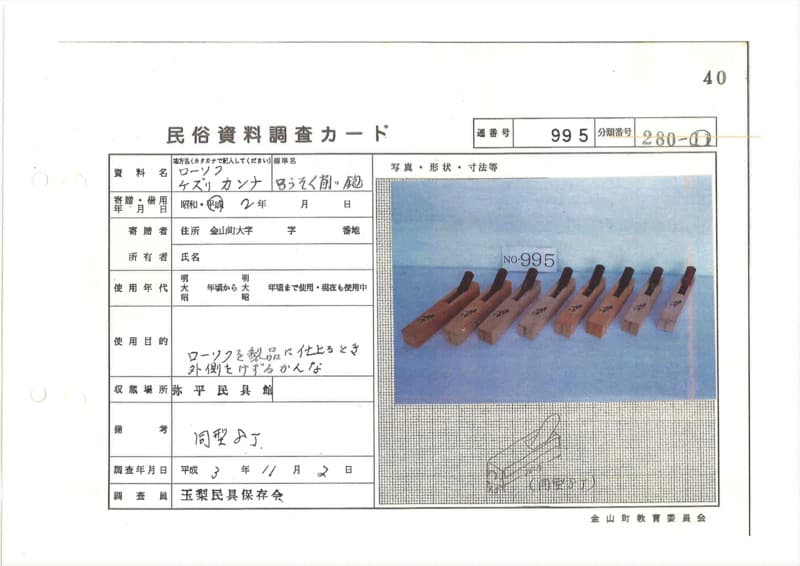 40
民俗資料調査カード
通番号 995 分類番号 280-11
資料名
地方名(カタカナで記入してください) 標準名
ローソク
ケズリ カンナ ロうそく削り鉋
寄贈・借用
年月日
昭和・平成 2年 月 日
寄贈者 住所 金山町大字 字 番地
所有者 氏名
使用年代 明 大 昭 年頃から 明 大 昭 年頃まで使用・現在も使用中
使用目的
ローソクを製品に仕上るとき
外側をけずるかんな
収蔵場所 弥平民具館
備考 同型8丁
調査年月日 平成 3 年 11 月 2 日
調査員 玉梨民具保存会
写真・形状・寸法等
NO.995
(同型8丁)
金山町教育委員会